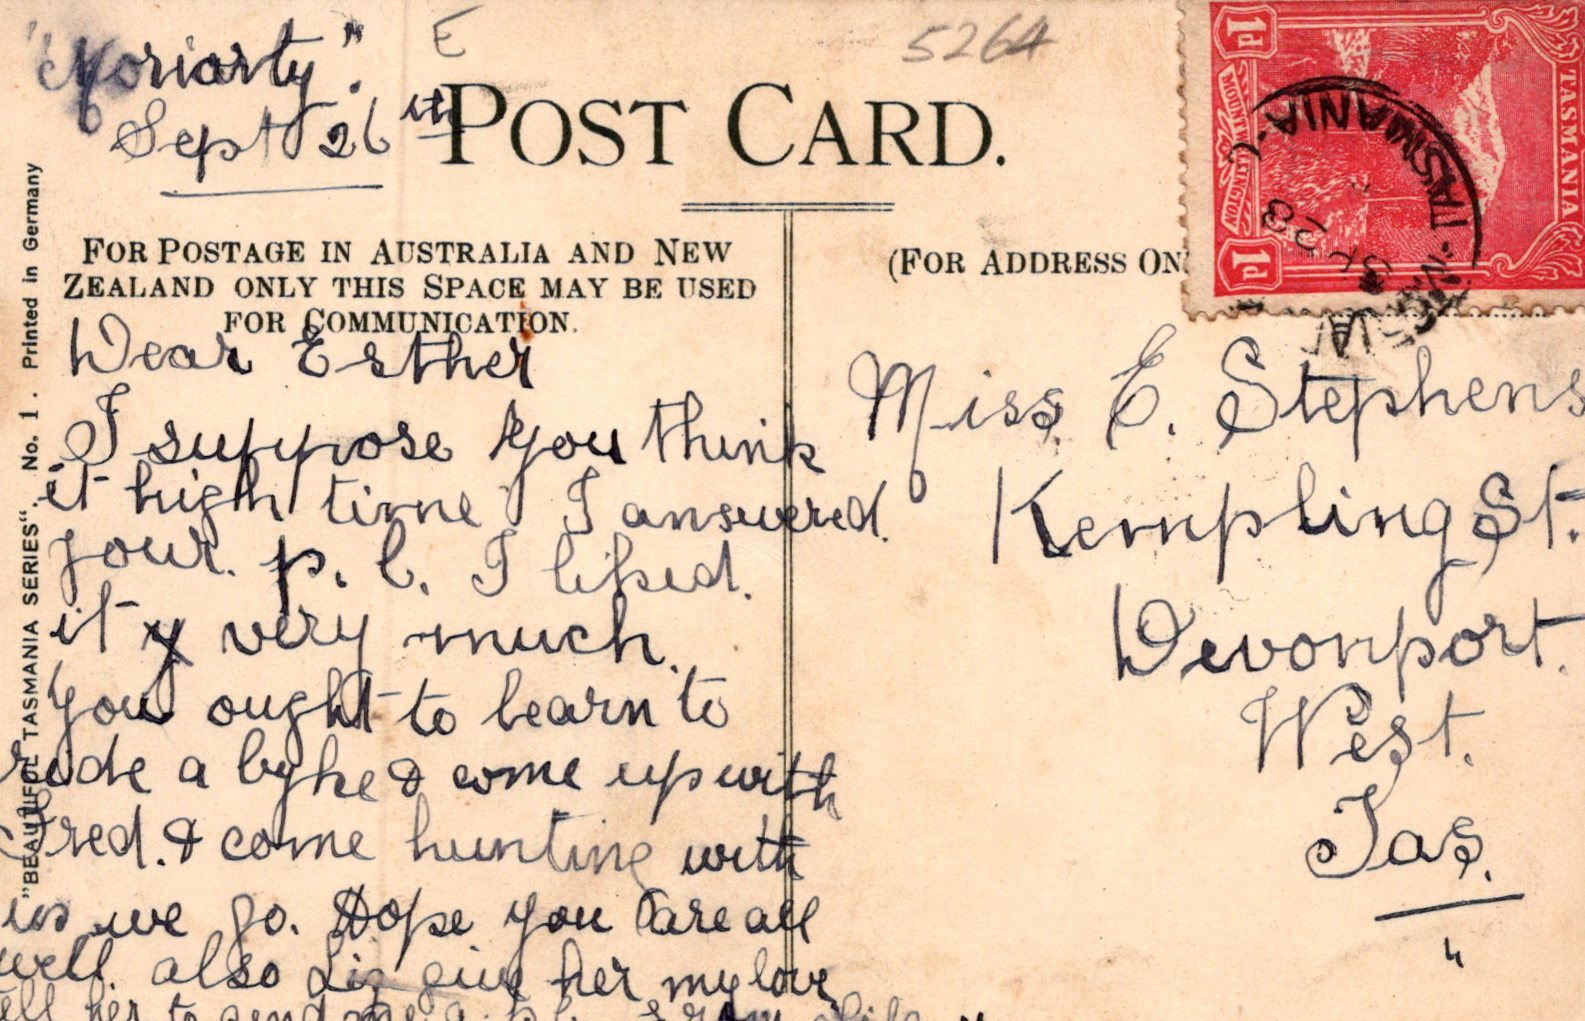 "Moriarty".
Sept 26th
E
5264
POST CARD.
FOR POSTAGE IN AUSTRALIA AND NEW
ZEALAND ONLY THIS SPACE MAY BE USED
FOR COMMUNICATION.
(FOR ADDRESS ON
"BEAUTIFUL TASMANIA SERIES". No. 1. Printed in Germany
Dear Esther
I suppose you think
it high time I answered.
your. p. c. I liked.
it very much.
You ought to learn to
ride a byke & come up with
Fred. & come hunting with
us we go. Hope you are all
well. also Liz give her my love
tell her to send me a p.c.
Miss. E. Stephens
Kempling St.
Devonport.
West.
Tas.
1d
TASMANIA
MOUNT WELLINGTON
1d
TASMANIA
28